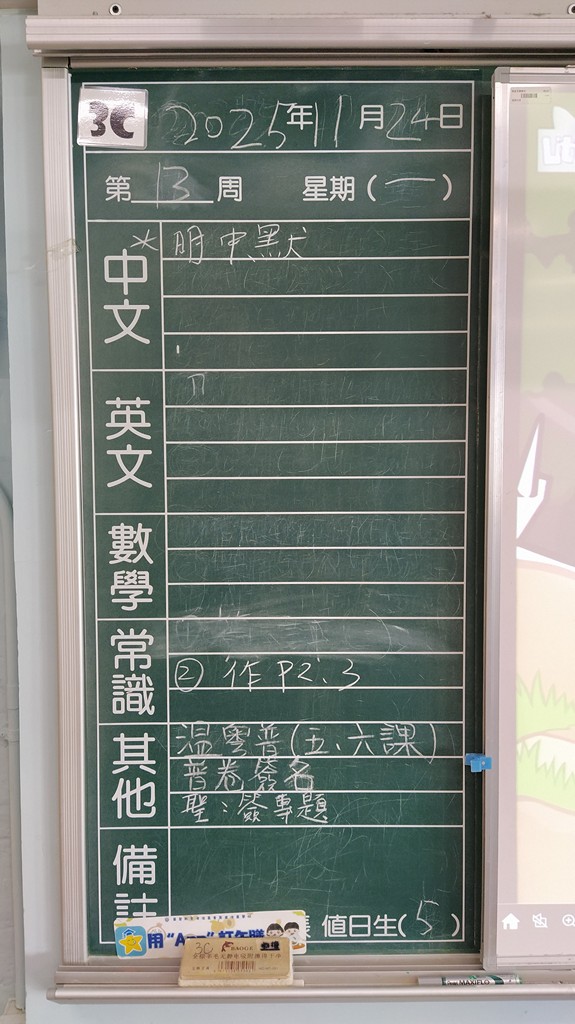 3C 2025年11月24日
第13周 星期(一)
中文
*明中默
英文
數學
常識
② 作P2、3
其他
溫雲普(五、六課)
普卷簽名
聖：簽專題
備註
用"App"訂午膳
值日生(5)
3C